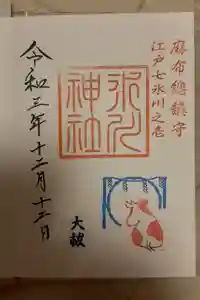 麻布總鎮守
江戸七氷川之壱
氷川
神社
大祓
令和三年十二月十三日